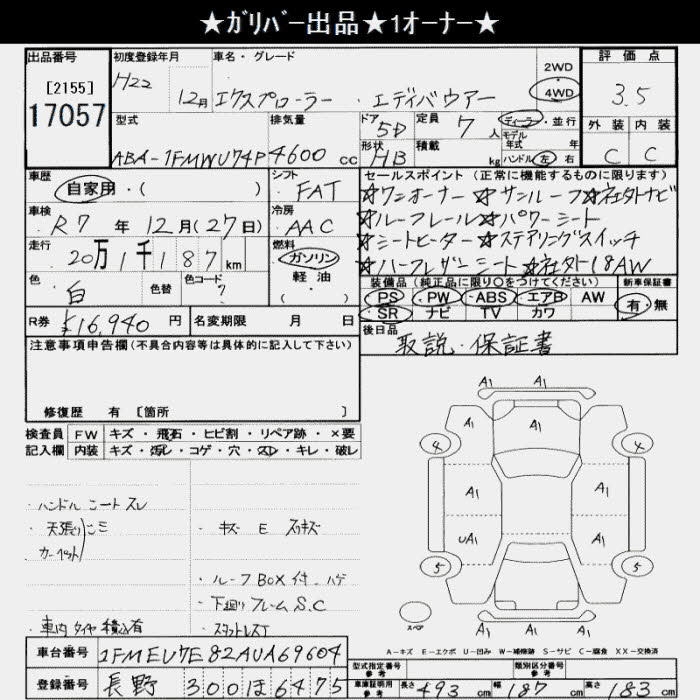 ★ガリバー出品★1オーナー★
出品番号 [2155] 17057
初度登録年月 H22 12月
車名・グレード エクスプローラー・エディバウアー
2WD 4WD
評価点 3.5
外装 内装
C C
型式 ABA-1FMWU74P
排気量 4600 cc
ドア 5D 形状 HB
定員 7人 積載 kg
ディーラー・並行
モデル年式 年
ハンドル 左 右
車歴 自家用・( )
シフト FAT
車検 R7年12月(27日)
冷房 AAC
走行 20万1千187km
燃料 ガソリン 軽油 ( )
色 白 色替 色コード ?
セールスポイント(正常に機能するものに限ります)
☆ワンオーナー☆サンルーフ☆社外ナビ
☆ルーフレール☆パワーシート
☆シートヒーター☆ステアリングスイッチ
☆ハーフレザーシート☆社外18AW
装備品(純正品に限り○をつけてください) 新車保証書
PS PW ABS エアB AW 有・無
SR ナビ TV カワ
R券 ¥16,940円 名変期限 月 日
後日品 取説・保証書
注意事項申告欄(不具合内容等は具体的に記入して下さい)
修復歴 有 [箇所 ]
検査員 FW キズ・飛石・ヒビ割・リペア跡・×要
記入欄 内装 キズ・汚レ・コゲ・穴・スレ・キレ・破レ
・ハンドル シート スレ
・天張り シミ
・カーペット
・キズ E スリキズ
・ルーフBOX付 ハゲ
・下廻り フレーム S.C
・車内 タイヤ 積込有
・スタットレス丁
A1 A1
A1
4 4
A1 A1
A1
UA1 A1
5 5
A1
スペア
A1 A1 A1
A-キズ E-エクボ U-凹み W-補修跡 S-サビ C-腐食 XX-交換済
車台番号 1FMEU7E82AUA69604
登録番号 長野 300ほ6475
型式指定番号 参考 類別区分番号 参考
車庫証明用 参考 長さ 493cm 幅 187cm 高さ 183cm